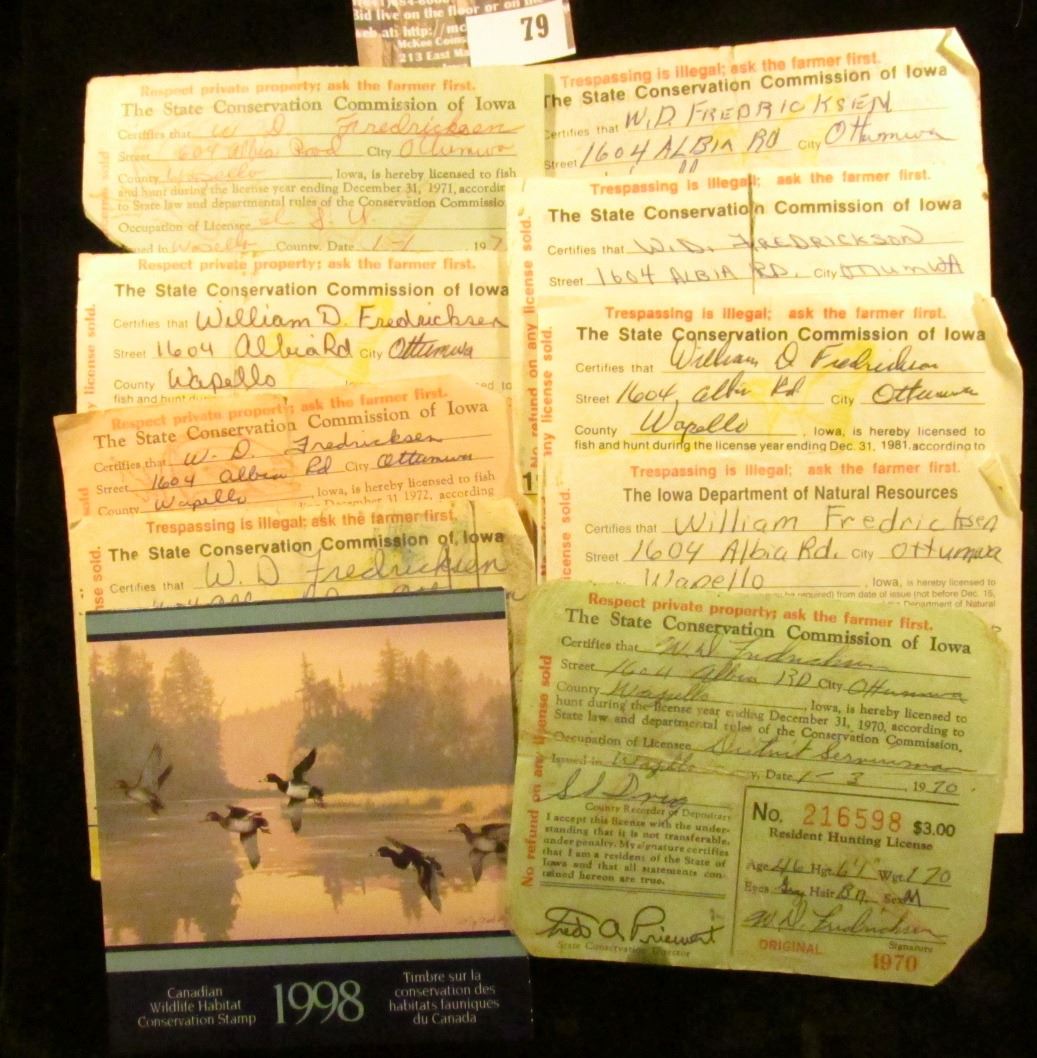 Bid live on the floor or on
213 East Ma
79
Respect private property; ask the farmer first.
The State Conservation Commission of Iowa
Certifies that W D Fredricksen
Street 1604 Albia Road City Ottumwa
County Wapello , Iowa, is hereby licensed to fish
and hunt during the license year ending December 31, 1971, accordin
to State law and departmental rules of the Conservation Commissio
Occupation of Licensee
Wapello County. Date 1-1 , 197
Respect private property; ask the farmer first.
The State Conservation Commission of Iowa
Certifies that William D. Fredricksen
Street 1604 Albia Rd City Ottumwa
County Wapello
license sold.
Respect private property; ask the farmer first.
The State Conservation Commission of Iowa
Certifies that W. D. Fredricksen
Street 1604 Albia Rd City Ottumwa
County Wapello , Iowa, is hereby licensed to
December 31 1972, according
Trespassing is illegal; ask the farmer first.
The State Conservation Commission of Iowa
Certifies that W. D Fredricksen
se sold.
Trespassing is illegal; ask the farmer first.
The State Conservation Commission of Iowa
Certifies that W.D. FREDRICKSEN
Street 1604 ALBIA RD City Ottumwa
Trespassing is illegal; ask the farmer first.
The State Conservation Commission of Iowa
Certifies that W.D. FREDRICKSON
Street 1604 ALBIA RD. City OTTUMWA
No refund on any license sold.
Trespassing is illegal; ask the farmer first.
The State Conservation Commission of Iowa
Certifies that William D Fredricksen
Street 1604 Albia Rd City Ottumwa
County Wapello , Iowa, is hereby licensed to
fish and hunt during the license year ending Dec. 31, 1981, according to
any license sold.
Trespassing is illegal; ask the farmer first.
The Iowa Department of Natural Resources
Certifies that William Fredricksen
Street 1604 Albia Rd. City Ottumwa
Wapello , Iowa, is hereby licensed to
required) from date of issue (not before Dec. 15,
Department of Natural
license sold.
Respect private property; ask the farmer first.
The State Conservation Commission of Iowa
Certifies that W. D. Fredricksen
Street 1604 Albia RD City Ottumwa
County Wapello , Iowa, is hereby licensed to
hunt during the license year ending December 31, 1970, according to
State law and departmental rules of the Conservation Commission.
Occupation of Licensee District Serviceman
Issued in Wapello y, Date 1-3 , 1970
County Recorder or Depositary
I accept this license with the under-
standing that it is not transferable,
under penalty. My signature certifies
that I am a resident of the State of
Iowa and that all statements con-
tained hereon are true.
State Conservation Director
No refund on any license sold
No. 216598 $3.00
Resident Hunting License
Age 46 Hgt. 64" Wgt. 170
Eyes Hair Bn. Sex M
W. D. Fredricksen
Signature
ORIGINAL 1970
Canadian
Wildlife Habitat
Conservation Stamp
1998
Timbre sur la
conservation des
habitats fauniques
du Canada